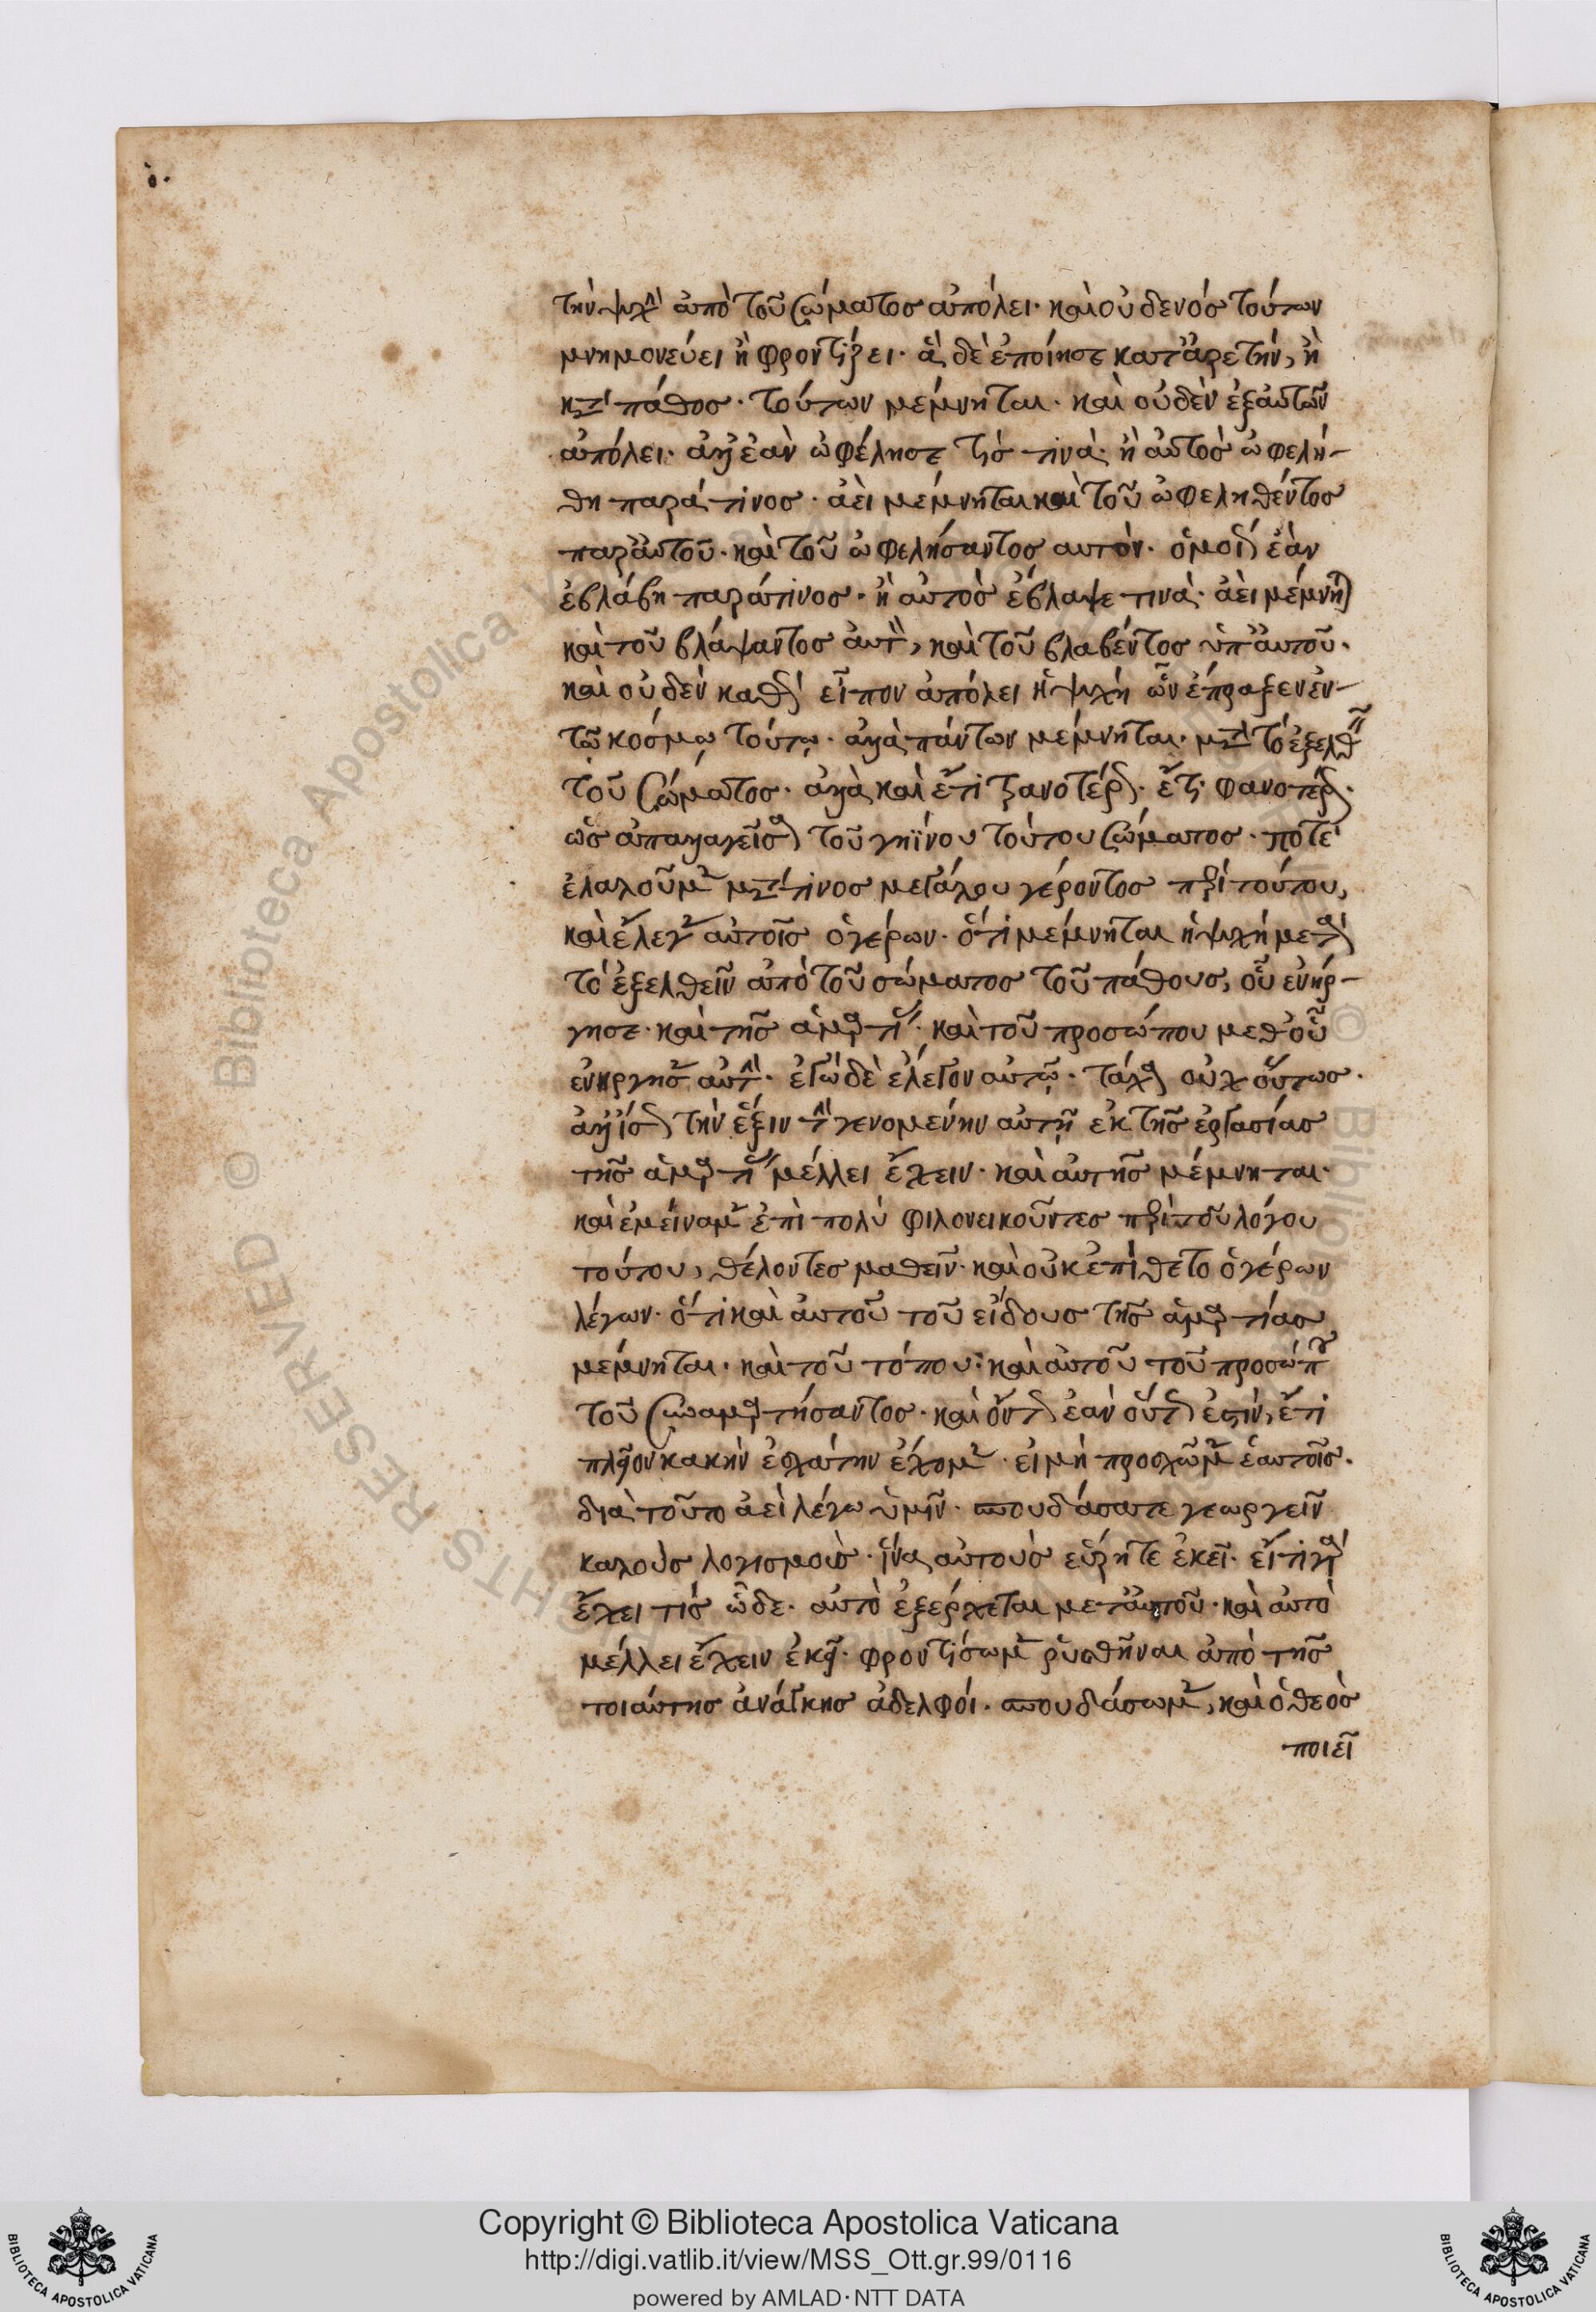 τὴν ψυχὴν ἀπὸ τοῦ σώματος ἀπόλει· καὶ οὐδενός τούτων
μνημονεύει ἢ φροντίζει· ἃ δὲ ἐποίησε κατ' ἀρετήν, ἢ
κατὰ πάθος· τούτων μέμνηται· καὶ οὐδὲν ἐξ αὐτῶν
ἀπόλει· ἀλλ' ἐὰν ὠφέλησέ τίς τινὰ· ἢ αὐτὸς ὠφελή-
θη παρά τινος· ἀεὶ μέμνηται καὶ τοῦ ὠφεληθέντος
παρ' αὐτοῦ· καὶ τοῦ ὠφελήσαντος αυτὸν· ὁμοίως ἐὰν
ἐβλάβη παρά τινος· ἢ αὐτὸς ἔβλαψε τινὰ· ἀεὶ μέμνηται
καὶ τοῦ βλάψαντος αὐτὸν, καὶ τοῦ βλαβέντος ὑπ' αὐτοῦ·
καὶ οὐδεν καθὼς εἶπον ἀπόλει ἡ ψυχή ὧν ἔπραξεν ἐν
τῷ κόσμῳ τούτῳ· ἀλλὰ πάντων μέμνηται· μετὰ τὸ ἐξελθεῖν
τοῦ σώματος· ἀλλὰ καὶ ἔτι τρανοτέρως· ἔτι φανοτέρως·
ὡς ἀπαλλαγεῖσα τοῦ γηΐνου τούτου σώματος· ποτὲ
ἐλαλοῦμεν μετά τινος μεγάλου γέροντος περὶ τούτου,
καὶ ἔλεγεν αὐτοῖς ὁ γέρων· ὅτι μέμνηται ἡ ψυχή μετὰ
τὸ ἐξελθεῖν ἀπὸ τοῦ σώματος τοῦ πάθους, οὗ ἐνήρ-
γησε· καὶ τῆς ἁμαρτίας· καὶ τοῦ προσώπου μεθ' οὗ
ἐνήργησεν αὐτὴν· ἐγὼ δὲ ἔλεγον αὐτῷ· τάχα οὐχ οὕτως·
ἀλλ' ἴσως τὴν ἕξιν τὴν γενομένην αὐτῇ ἐκ τῆς ἐργασίας
τῆς ἁμαρτίας μέλλει ἔχειν· καὶ αὐτῆς μέμνηται·
καὶ ἐμείναμεν ἐπὶ πολὺ φιλονεικοῦντες περὶ τοῦ λόγου
τούτου, θέλοντες μαθεῖν· καὶ οὐκ ἐπίθετο ὁ γέρων
λέγων· ὅτι καὶ αὐτοῦ τοῦ εἴδους τῆς ἁμαρτίας
μέμνηται· καὶ τοῦ τόπου· καὶ αὐτοῦ τοῦ προσώπου
τοῦ συναμαρτήσαντος· καὶ ὄντως ἐὰν οὕτως ἐστίν, ἔτι
πλεῖον κακὴν ἐσχάτην ἔχομεν· εἰ μὴ προσχῶμεν ἑαυτοῖς·
διὰ τοῦτο ἀεὶ λέγω ὑμῖν· σπουδάσατε γεωργεῖν
καλοὺς λογισμοὺς· ἵνα αὐτοὺς εὕρητε ἐκεῖ· εἴ τι γὰρ
ἔχει τίς ὧδε· αὐτὸ ἐξέρχεται μετ' αὐτοῦ· καὶ αὐτὸ
μέλλει ἔχειν ἐκεῖ· φροντίσωμεν ῥυσθῆναι ἀπὸ τῆς
τοιαύτης ἀνάγκης ἀδελφοί· σπουδάσωμεν, καὶ ὁ θεὸς
ποιεῖ
Copyright © Biblioteca Apostolica Vaticana
http://digi.vatlib.it/view/MSS_Ott.gr.99/0116
powered by AMLAD·NTT DATA